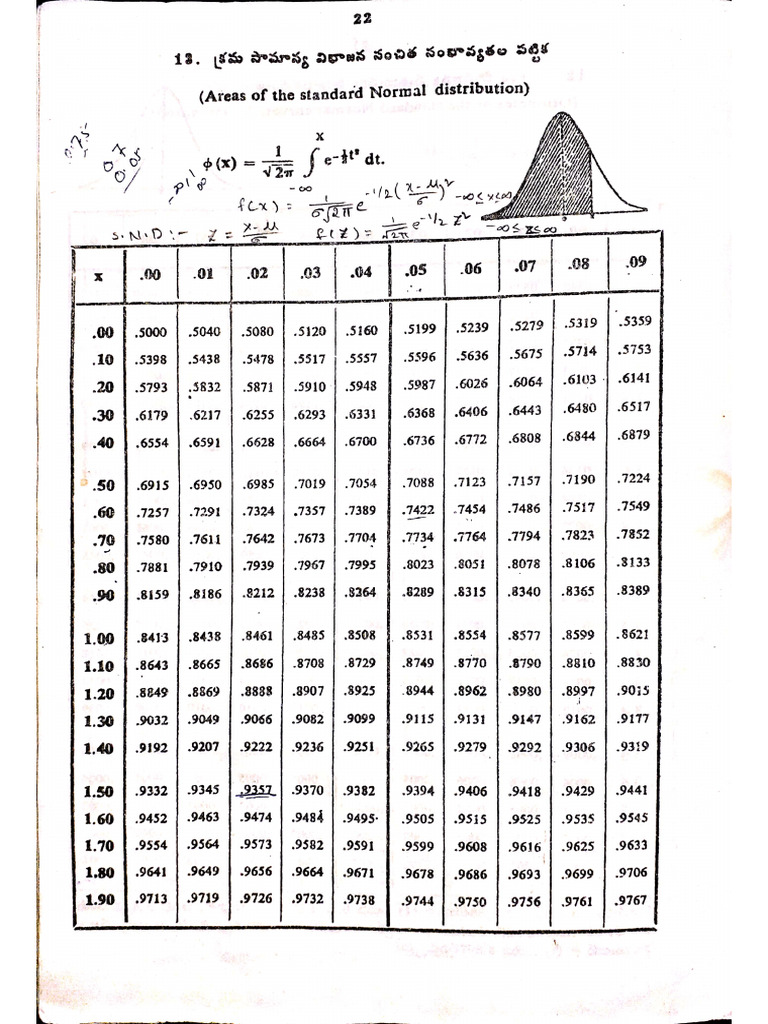 22
13. క్రమ సామాన్య విభాజన సంచిత సంభావ్యతల పట్టిక
(Areas of the standard Normal distribution)
0.75
0.7
0.05
φ(x) = 1/√2π ∫ x -∞ e^-½t² dt.
f(x) = 1/σ√2π e^-1/2(x-μ/σ)² -∞≤x≤∞
S.N.D :- Z = x-μ/σ f(Z) = 1/√2π e^-1/2 Z² -∞≤z≤∞
x .00 .01 .02 .03 .04 .05 .06 .07 .08 .09
.00 .5000 .5040 .5080 .5120 .5160 .5199 .5239 .5279 .5319 .5359
.10 .5398 .5438 .5478 .5517 .5557 .5596 .5636 .5675 .5714 .5753
.20 .5793 .5832 .5871 .5910 .5948 .5987 .6026 .6064 .6103 .6141
.30 .6179 .6217 .6255 .6293 .6331 .6368 .6406 .6443 .6480 .6517
.40 .6554 .6591 .6628 .6664 .6700 .6736 .6772 .6808 .6844 .6879
.50 .6915 .6950 .6985 .7019 .7054 .7088 .7123 .7157 .7190 .7224
.60 .7257 .7291 .7324 .7357 .7389 .7422 .7454 .7486 .7517 .7549
.70 .7580 .7611 .7642 .7673 .7704 .7734 .7764 .7794 .7823 .7852
.80 .7881 .7910 .7939 .7967 .7995 .8023 .8051 .8078 .8106 .8133
.90 .8159 .8186 .8212 .8238 .8264 .8289 .8315 .8340 .8365 .8389
1.00 .8413 .8438 .8461 .8485 .8508 .8531 .8554 .8577 .8599 .8621
1.10 .8643 .8665 .8686 .8708 .8729 .8749 .8770 .8790 .8810 .8830
1.20 .8849 .8869 .8888 .8907 .8925 .8944 .8962 .8980 .8997 .9015
1.30 .9032 .9049 .9066 .9082 .9099 .9115 .9131 .9147 .9162 .9177
1.40 .9192 .9207 .9222 .9236 .9251 .9265 .9279 .9292 .9306 .9319
1.50 .9332 .9345 .9357 .9370 .9382 .9394 .9406 .9418 .9429 .9441
1.60 .9452 .9463 .9474 .9484 .9495 .9505 .9515 .9525 .9535 .9545
1.70 .9554 .9564 .9573 .9582 .9591 .9599 .9608 .9616 .9625 .9633
1.80 .9641 .9649 .9656 .9664 .9671 .9678 .9686 .9693 .9699 .9706
1.90 .9713 .9719 .9726 .9732 .9738 .9744 .9750 .9756 .9761 .9767